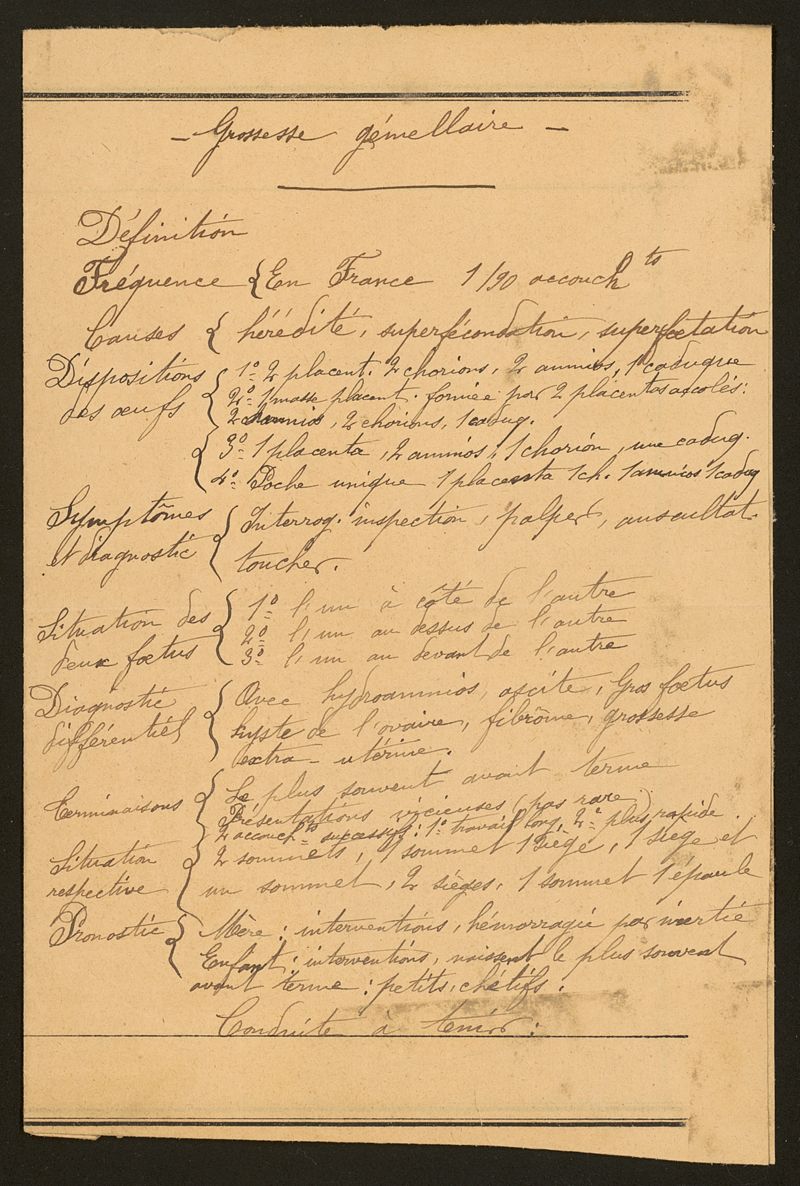 — Grossesse gémellaire —
Définition
Fréquence { En France 1/90 accouchts
Causes { hérédité, superfécondation, superfœtation
Dispositions des œufs { 1º 2 placent. 2 chorions, 2 amnios, 1 caduque
2º 1 masse placent. formée par 2 placentas accolés:
2 amnios, 2 chorions, 1 caduq.
3º 1 placenta, 2 amnios, 1 chorion, une caduq.
4º Poche unique 1 placenta 1 ch. 1 amnios 1 caduq
Symptômes et diagnostic { Interrog. inspection, palper, auscultat.
toucher.
Situation des deux fœtus { 1º l'un à côté de l'autre
2º l'un au dessus de l'autre
3º l'un au devant de l'autre
Diagnostic différentiel { Avec hydroamnios, ascite, gros fœtus
kyste de l'ovaire, fibrôme, grossesse
extra-utérine.
Terminaisons { Le plus souvent avant terme
Présentations vicieuses pas rare
2 accouchts successifs: 1º travail long, 2º plus rapide.
Situation respective { 2 sommets, 1 sommet 1 siège, 1 siège et
un sommet, 2 sièges, 1 sommet 1 épaule
Pronostic { Mère: interventions, hémorragie par inertie
Enfant: interventions, naissent le plus souvent
avant terme: petits, chétifs.
Conduite à tenir: